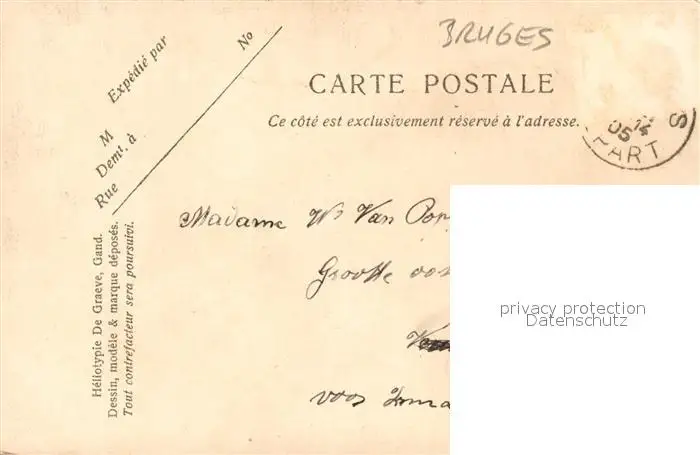 BRUGES
Expédié par
No
M
Demt. à
Rue
CARTE POSTALE
Ce côté est exclusivement réservé à l'adresse.
14
05
PART
S
Madame Wr Van Pop
Groote
voor
Héliotypie De Graeve, Gand.
Dessin, modèle & marque déposés.
Tout contrefacteur sera poursuivi.
privacy protection
Datenschutz